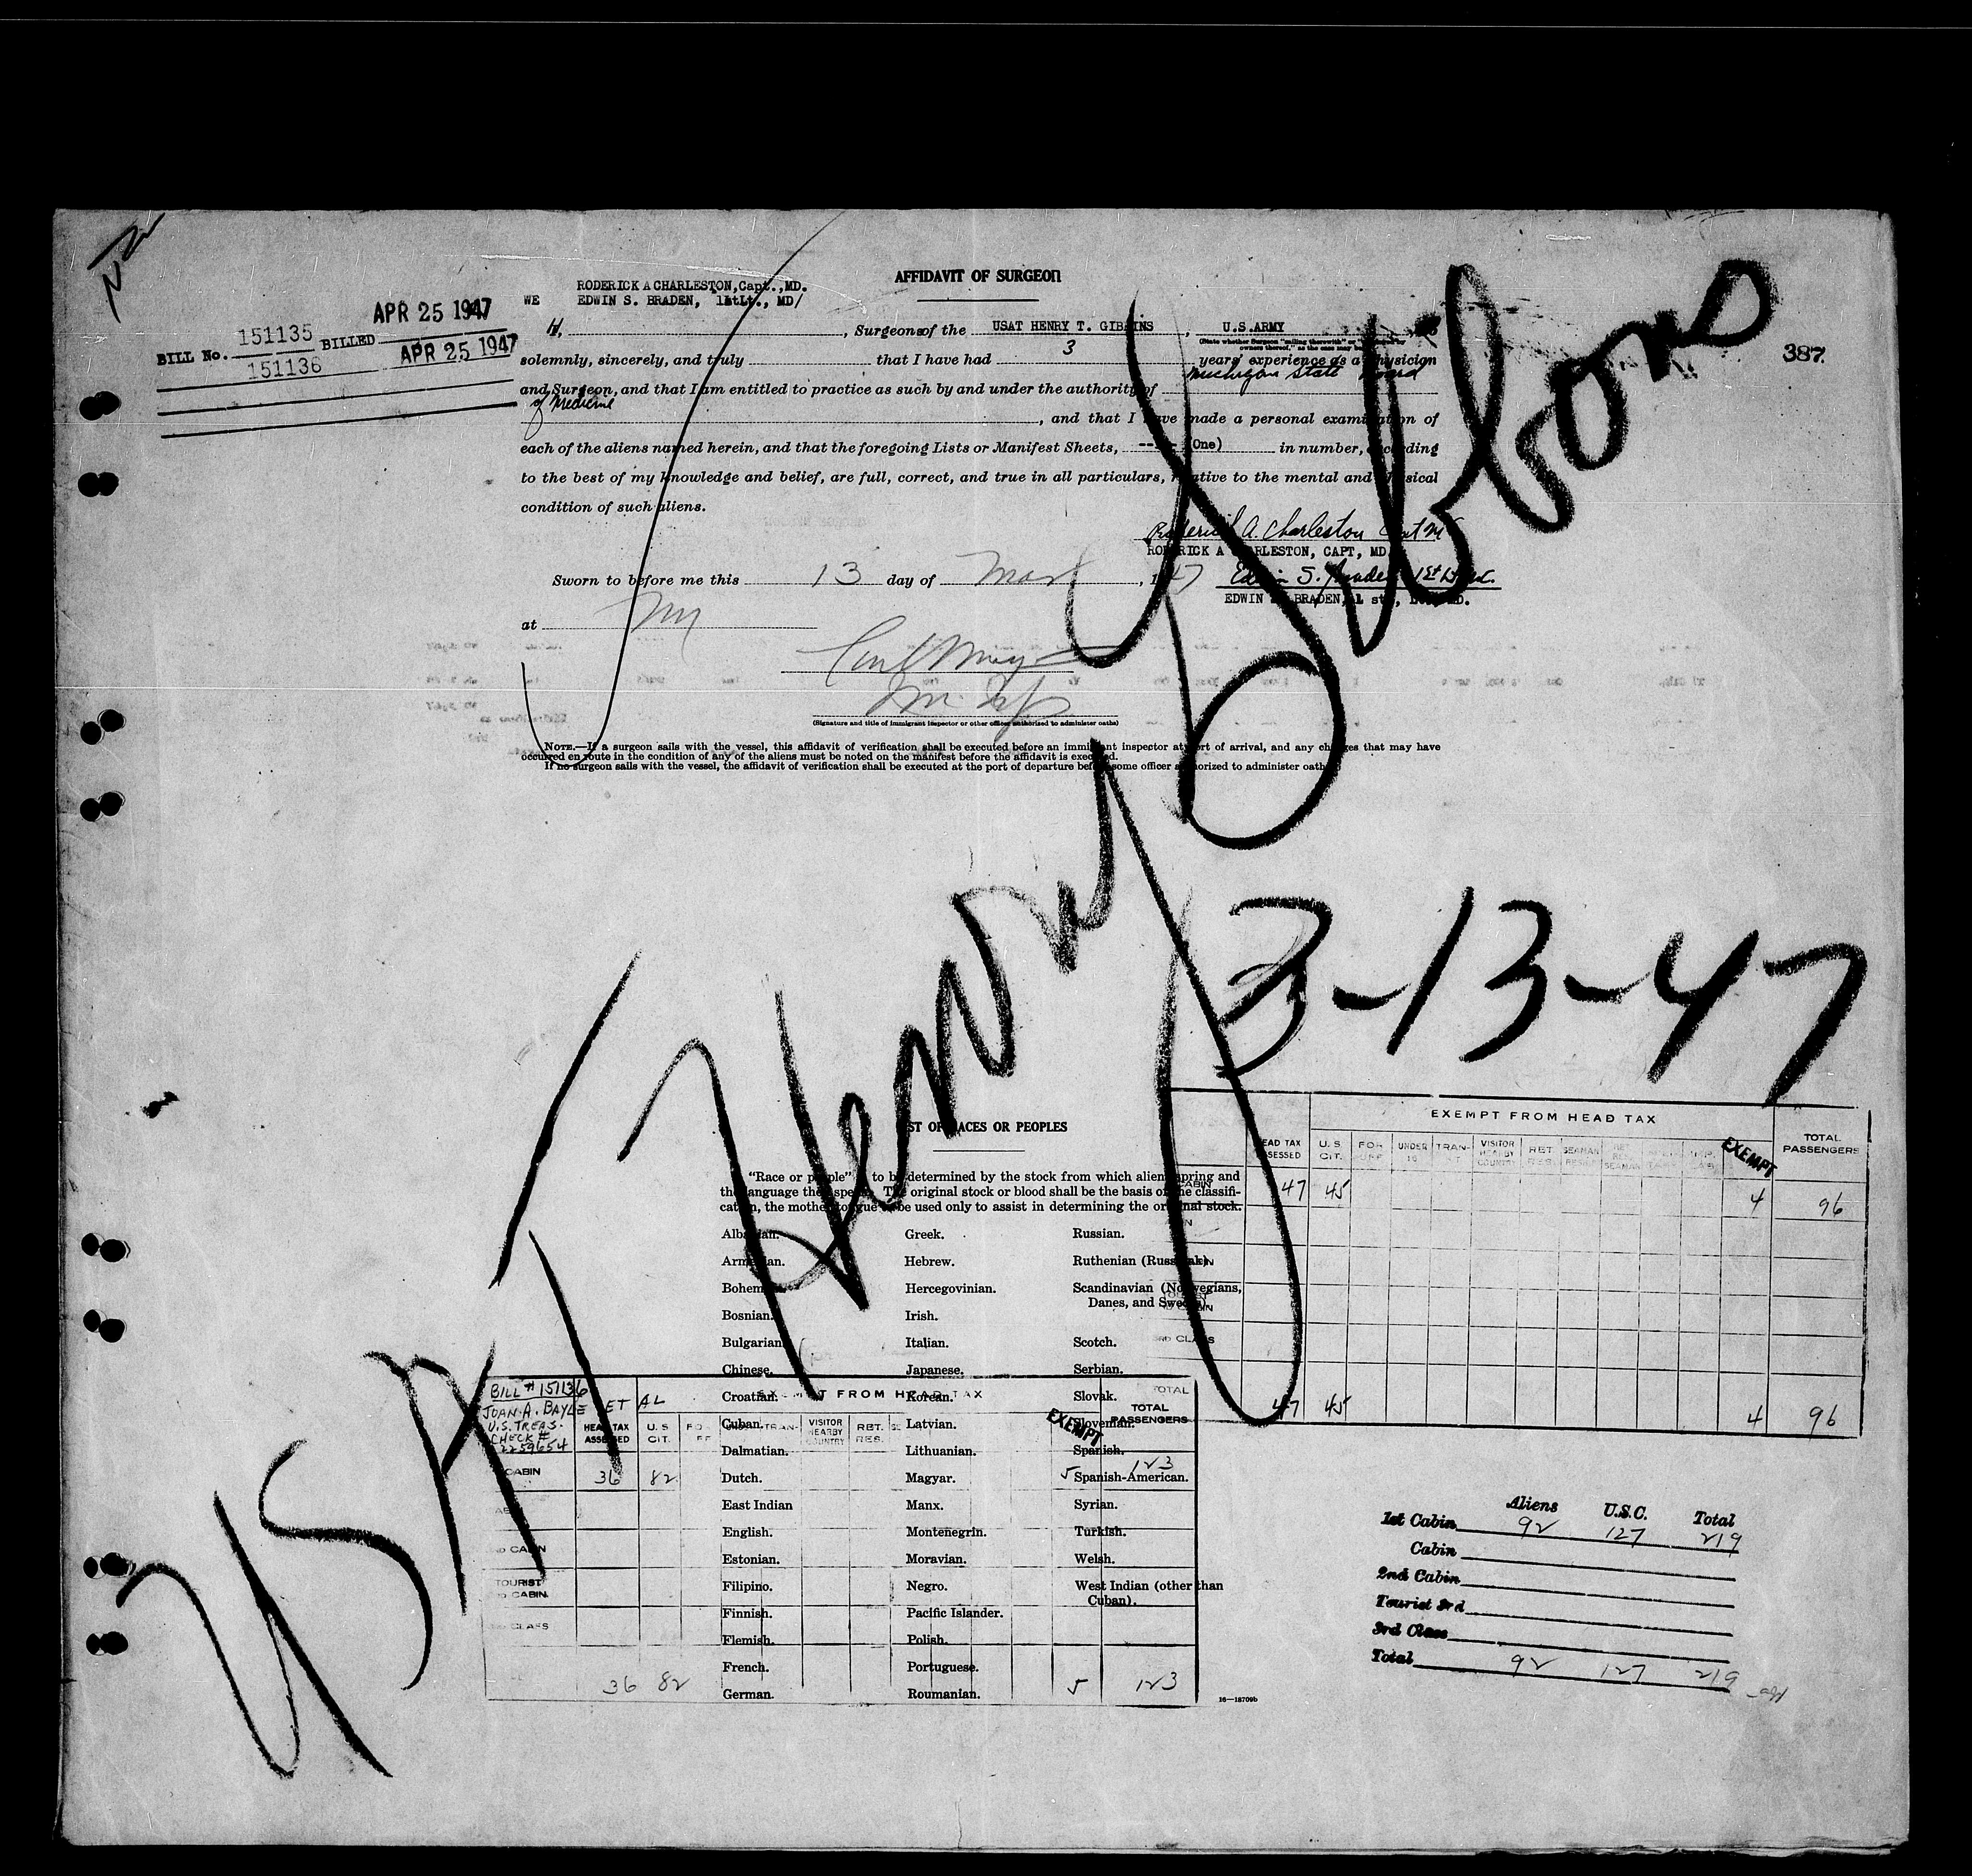 AFFIDAVIT OF SURGEON
RODERICK A CHARLESTON, Capt., MD.
WE EDWIN S. BRADEN, 1stLt., MD/
APR 25 1947
BILL No. 151135 BILLED
151136 APR 25 1947
387
I, , Surgeons of the USAT HENRY T. GIBBINS , U.S.ARMY
(State whether Surgeon "sailing therewith" or "employed by owners thereof," as the case may be)
solemnly, sincerely, and truly that I have had 3 years' experience as a Physician
and Surgeon, and that I am entitled to practice as such by and under the authority of Michigan State Board
of Medicine , and that I have made a personal examination of
each of the aliens named herein, and that the foregoing Lists or Manifest Sheets, ---- (One) in number, according
to the best of my knowledge and belief, are full, correct, and true in all particulars, relative to the mental and physical
condition of such aliens.
Roderick A. Charleston Capt MC
RODERICK A CHARLESTON, CAPT, MD.
Sworn to before me this 13 day of Mar , 1947 Edwin S. Braden 1st Lt
EDWIN S. BRADEN, 1 st., Lt., MD.
at NY
(Signature and title of immigrant inspector or other officer authorized to administer oaths)
NOTE.—If a surgeon sails with the vessel, this affidavit of verification shall be executed before an immigrant inspector at port of arrival, and any changes that may have
occurred en route in the condition of any of the aliens must be noted on the manifest before the affidavit is executed.
If no surgeon sails with the vessel, the affidavit of verification shall be executed at the port of departure before some officer authorized to administer oaths.
USAT Henry Gibbons
3-13-47
LIST OF RACES OR PEOPLES
"Race or people" is to be determined by the stock from which aliens spring and
the language they speak. The original stock or blood shall be the basis of the classifi-
cation, the mother tongue to be used only to assist in determining the original stock.
Albanian. Greek. Russian.
Armenian. Hebrew. Ruthenian (Russniak).
Bohemian. Hercegovinian. Scandinavian (Norwegians,
Danes, and Swedes).
Bosnian. Irish.
Bulgarian. Italian. Scotch.
Chinese. Japanese. Serbian.
Croatian. Korean. Slovak.
Cuban. Latvian. Slovenian.
Dalmatian. Lithuanian. Spanish.
Dutch. Magyar. Spanish-American.
East Indian Manx. Syrian.
English. Montenegrin. Turkish.
Estonian. Moravian. Welsh.
Filipino. Negro. West Indian (other than
Cuban).
Finnish. Pacific Islander.
Flemish. Polish.
French. Portuguese.
German. Roumanian.
16—18709b
EXEMPT FROM HEAD TAX
HEAD TAX ASSESSED U.S. CIT. FOR UNDER 16 TRAN- VISITOR NEARBY COUNTRY RET. RES. SEAMAN EXEMPT TOTAL PASSENGERS
CABIN 47 45 4 96
3RD CLASS
47 45 4 96
BILL # 151136
JOAN A. BAYLE ET AL
U.S. TREAS.
CHECK #
2259654
EXEMPT FROM HEAD TAX
HEAD TAX ASSESSED U.S. CIT. TRAN- VISITOR NEARBY COUNTRY RET. RES. EXEMPT TOTAL PASSENGERS
CABIN 36 82 5 123
CABIN
TOURIST
3D CABIN
CLASS
36 82 5 123
Aliens U.S.C. Total
1st Cabin 92 127 219
Cabin
2nd Cabin
Tourist 3rd
3rd Class
Total 92 127 219